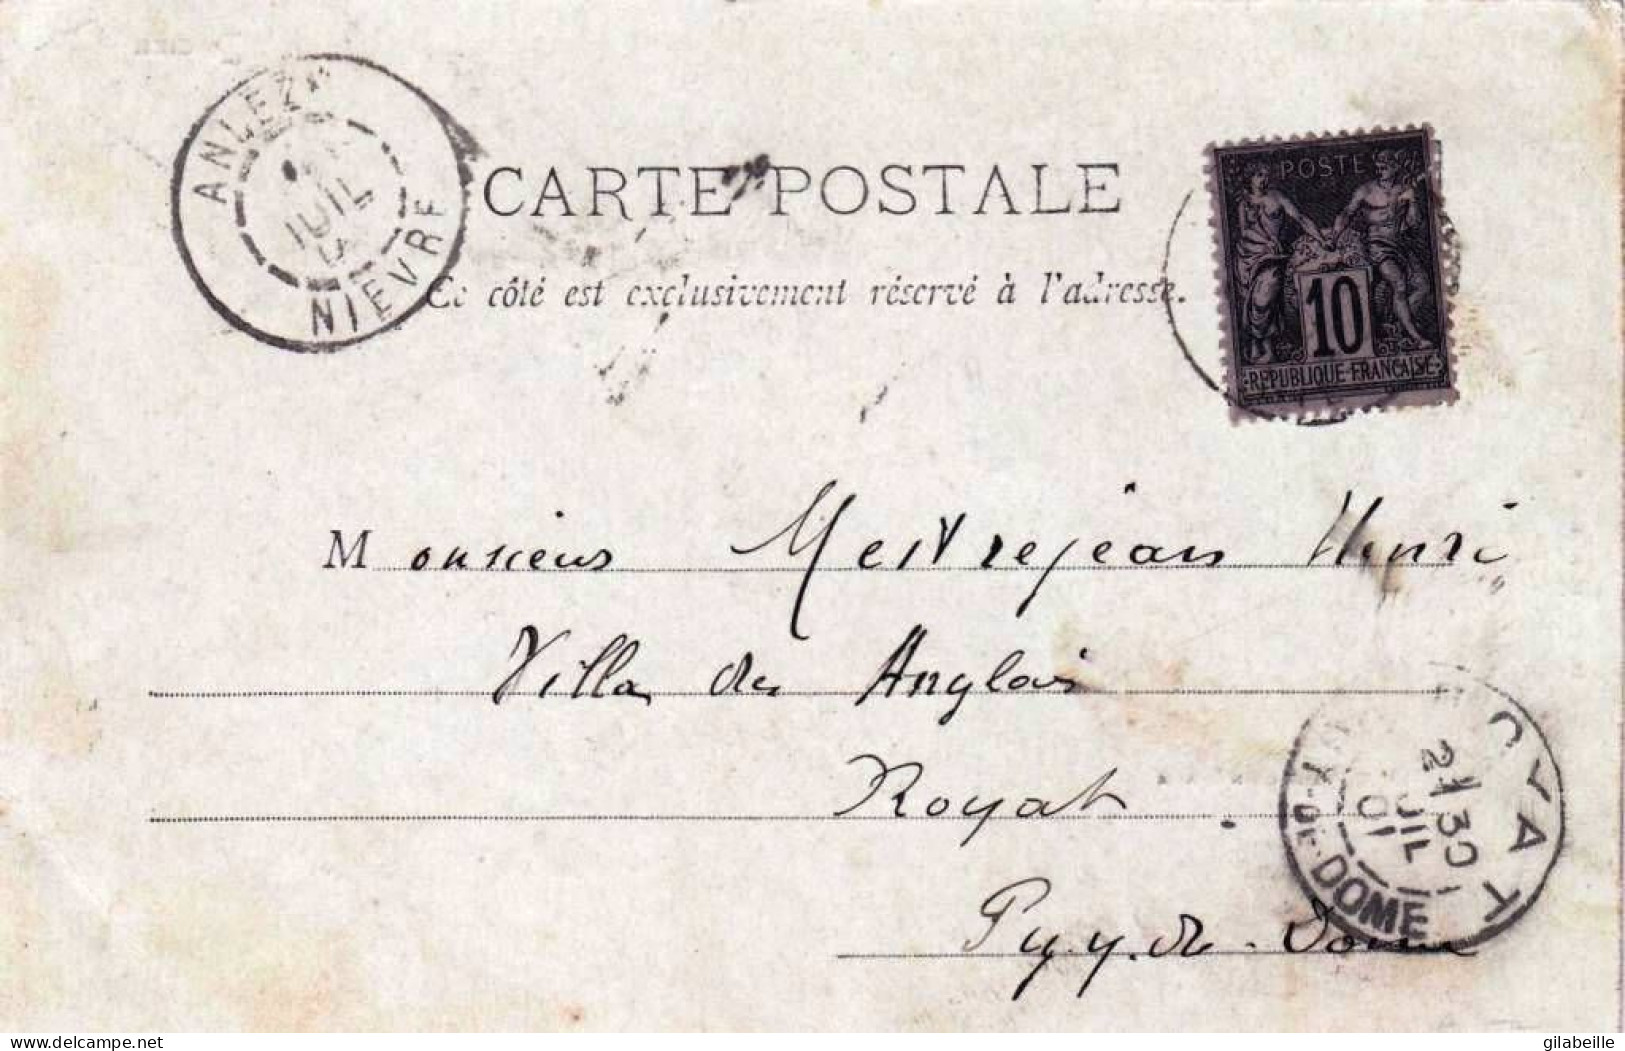 ANLEZY
JUIL
NIEVRE
CARTE POSTALE
Ce côté est exclusivement réservé à l'adresse.
POSTE
10
REPUBLIQUE FRANÇAISE
Monsieur Mestrejean Henri
Villa des Anglais
Royat
Puy. de. Dome
ROYAT
2 30
JUIL
01
PUY-DE-DOME
www.delcampe.net
gilabeille